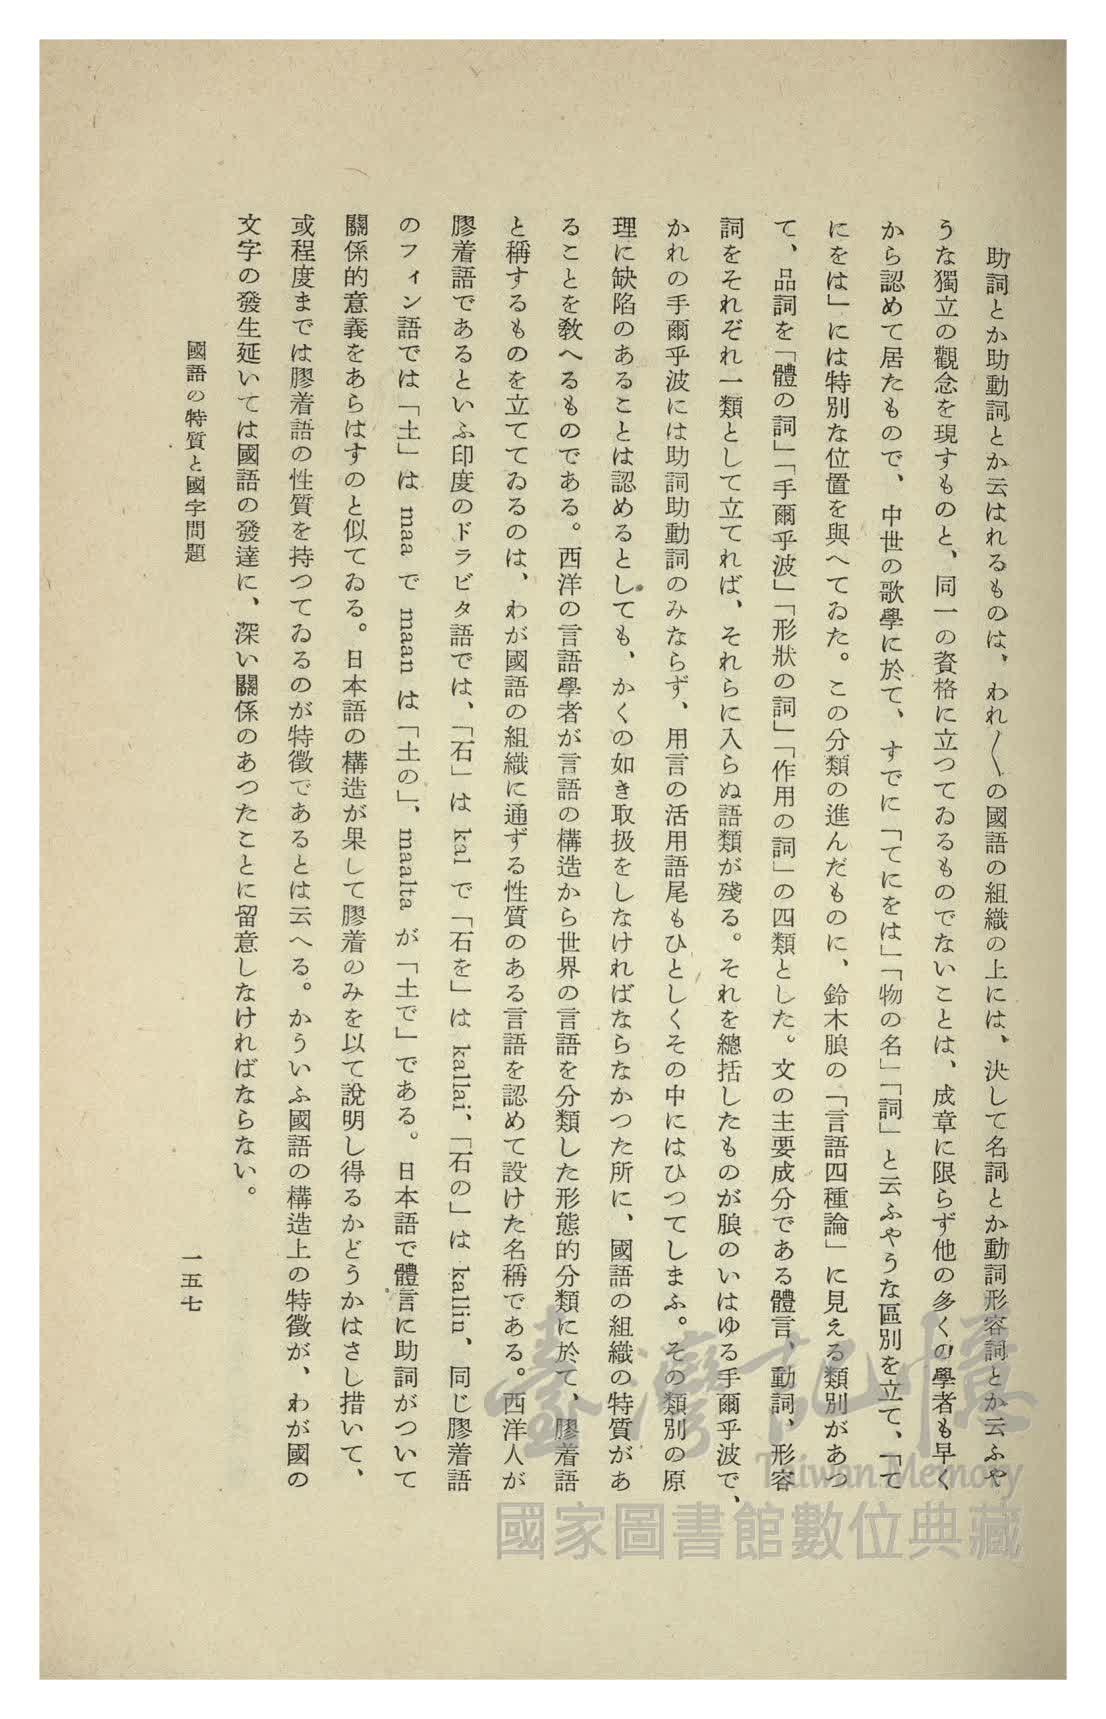 助詞とか助動詞とか云はれるものは、われ〳〵の國語の組織の上には、決して名詞とか動詞形容詞とか云ふや
うな獨立の觀念を現すものと、同一の資格に立つてゐるものでないことは、成章に限らず他の多くの學者も早く
から認めて居たもので、中世の歌學に於て、すでに「てにをは」「物の名」「詞」と云ふやうな區別を立て、「て
にをは」には特別な位置を與へてゐた。この分類の進んだものに、鈴木朖の「言語四種論」に見える類別があつ
て、品詞を「體の詞」「手爾乎波」「形狀の詞」「作用の詞」の四類とした。文の主要成分である體言、動詞、形容
詞をそれぞれ一類として立てれば、それらに入らぬ語類が殘る。それを總括したものが朖のいはゆる手爾乎波で、
かれの手爾乎波には助詞助動詞のみならず、用言の活用語尾もひとしくその中にはひつてしまふ。その類別の原
理に缺陷のあることは認めるとしても、かくの如き取扱をしなければならなかつた所に、國語の組織の特質があ
ることを敎へるものである。西洋の言語學者が言語の構造から世界の言語を分類した形態的分類に於て、膠着語
と稱するものを立ててゐるのは、わが國語の組織に通ずる性質のある言語を認めて設けた名稱である。西洋人が
膠着語であるといふ印度のドラビタ語では、「石」は kal で「石を」は kallai、「石の」は kallin、同じ膠着語
のフィン語では「土」は maa で maan は「土の」、maalta が「土で」である。日本語で體言に助詞がついて
關係的意義をあらはすのと似てゐる。日本語の構造が果して膠着のみを以て說明し得るかどうかはさし措いて、
或程度までは膠着語の性質を持つてゐるのが特徵であるとは云へる。かういふ國語の構造上の特徵が、わが國の
文字の發生延いては國語の發達に、深い關係のあつたことに留意しなければならない。
國語の特質と國字問題
一五七
臺灣記憶
Taiwan Memory
國家圖書館數位典藏